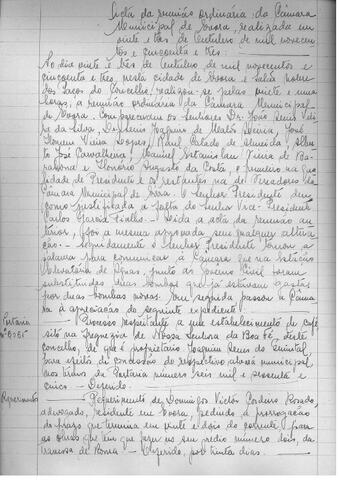 Acta da reunião ordinária da Câmara
Municipal de Evora, realizada em
vinte e três de Outubro de mil novecen
tos e cinquenta e três.
Ao dia vinte e três de Outubro de mil novecentos e
cinquenta e três, nesta cidade de Evora e salão nobre
dos Paços do Concelho, realizou-se pelas vinte e uma
horas, a reunião ordinária da Câmara Municipal
de Evora. Compareceram os senhores Dr. João Luis Viei
ra da Silva, Joaquim de Matos José
Vieira Lopes, Raul de Almeida, Alber
to José Carvalheira, Manuel Estanislau Vieira de Ba
rahona e Honório Augusto da Costa, o primeiro na qua
lidade de Presidente e os restantes na de Vereadores da
Câmara Municipal de Evora. O senhor Presidente deu
como justificada a falta do senhor Vice-Presidente
Carlos Garcia Fialho. - Lida a acta da reunião an
terior, foi a mesma aprovada sem qualquer altera
ção. - Seguidamente o senhor Presidente tomou a
palavra para comunicar à Câmara que na Estação
Elevatória de Aguas, junto ao Governo Civil foram
substituidas duas bombas que já estavam gastas
por duas bombas novas. Em seguida passou a Câma
ra à apreciação do seguinte expediente:
Portaria - Processo respeitante a um estabelecimento de café
nº 6:065 sito na freguesia de Nossa Senhora da Boa Fé, deste
concelho, de que é proprietário Joaquim do Quintal,
para efeito da concessão do respectivo alvará municipal,
nos termos da Portaria número seis mil e sessenta e
cinco. - Deferido. -
Requerimentos - Requerimento de Domingos Victor Cordeiro Rosado,
advogado, residente em Evora, pedindo a prorrogação
do prazo que termina em vinte e dois do corrente para
as obras que tem que fazer no seu prédio número dois, da
travessa de - Deferido, por trinta dias.